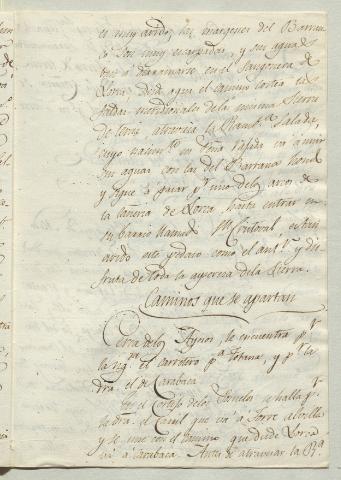 es muy arido; las margenes del Barran
co son muy escarpadas, y sus aguas
van á derramarse en el Sangonera de
Lorca: desde aqui el camino cortea las
faldas meridionales de la misma Sierra
de atraviesa la Ramb.ª Salada,
cuyo en Peña rubia vá á unir
sus aguas con las del Barranco hondo
y sigue á pasar p.r uno de los arcos de
la Cañeria de Lorca, hasta entrar en
su barrio llamado S.n Cristoval, es tan
arido este pedazo como el ant.r y dis
fruta de toda la aspereza de la Sierra.
Caminos que se apartan
Cerca de los se encuentra p.r
la izq.da el carretero p.ª Totana, y p.r la
dra. el de Caravaca.
En el Cortijo de los se halla p.r
la dra. el Carril que vá á Torre alvilla
y se une con el camino que desde Lorca
vá á Carabaca. Antes de atravesar la R.ª